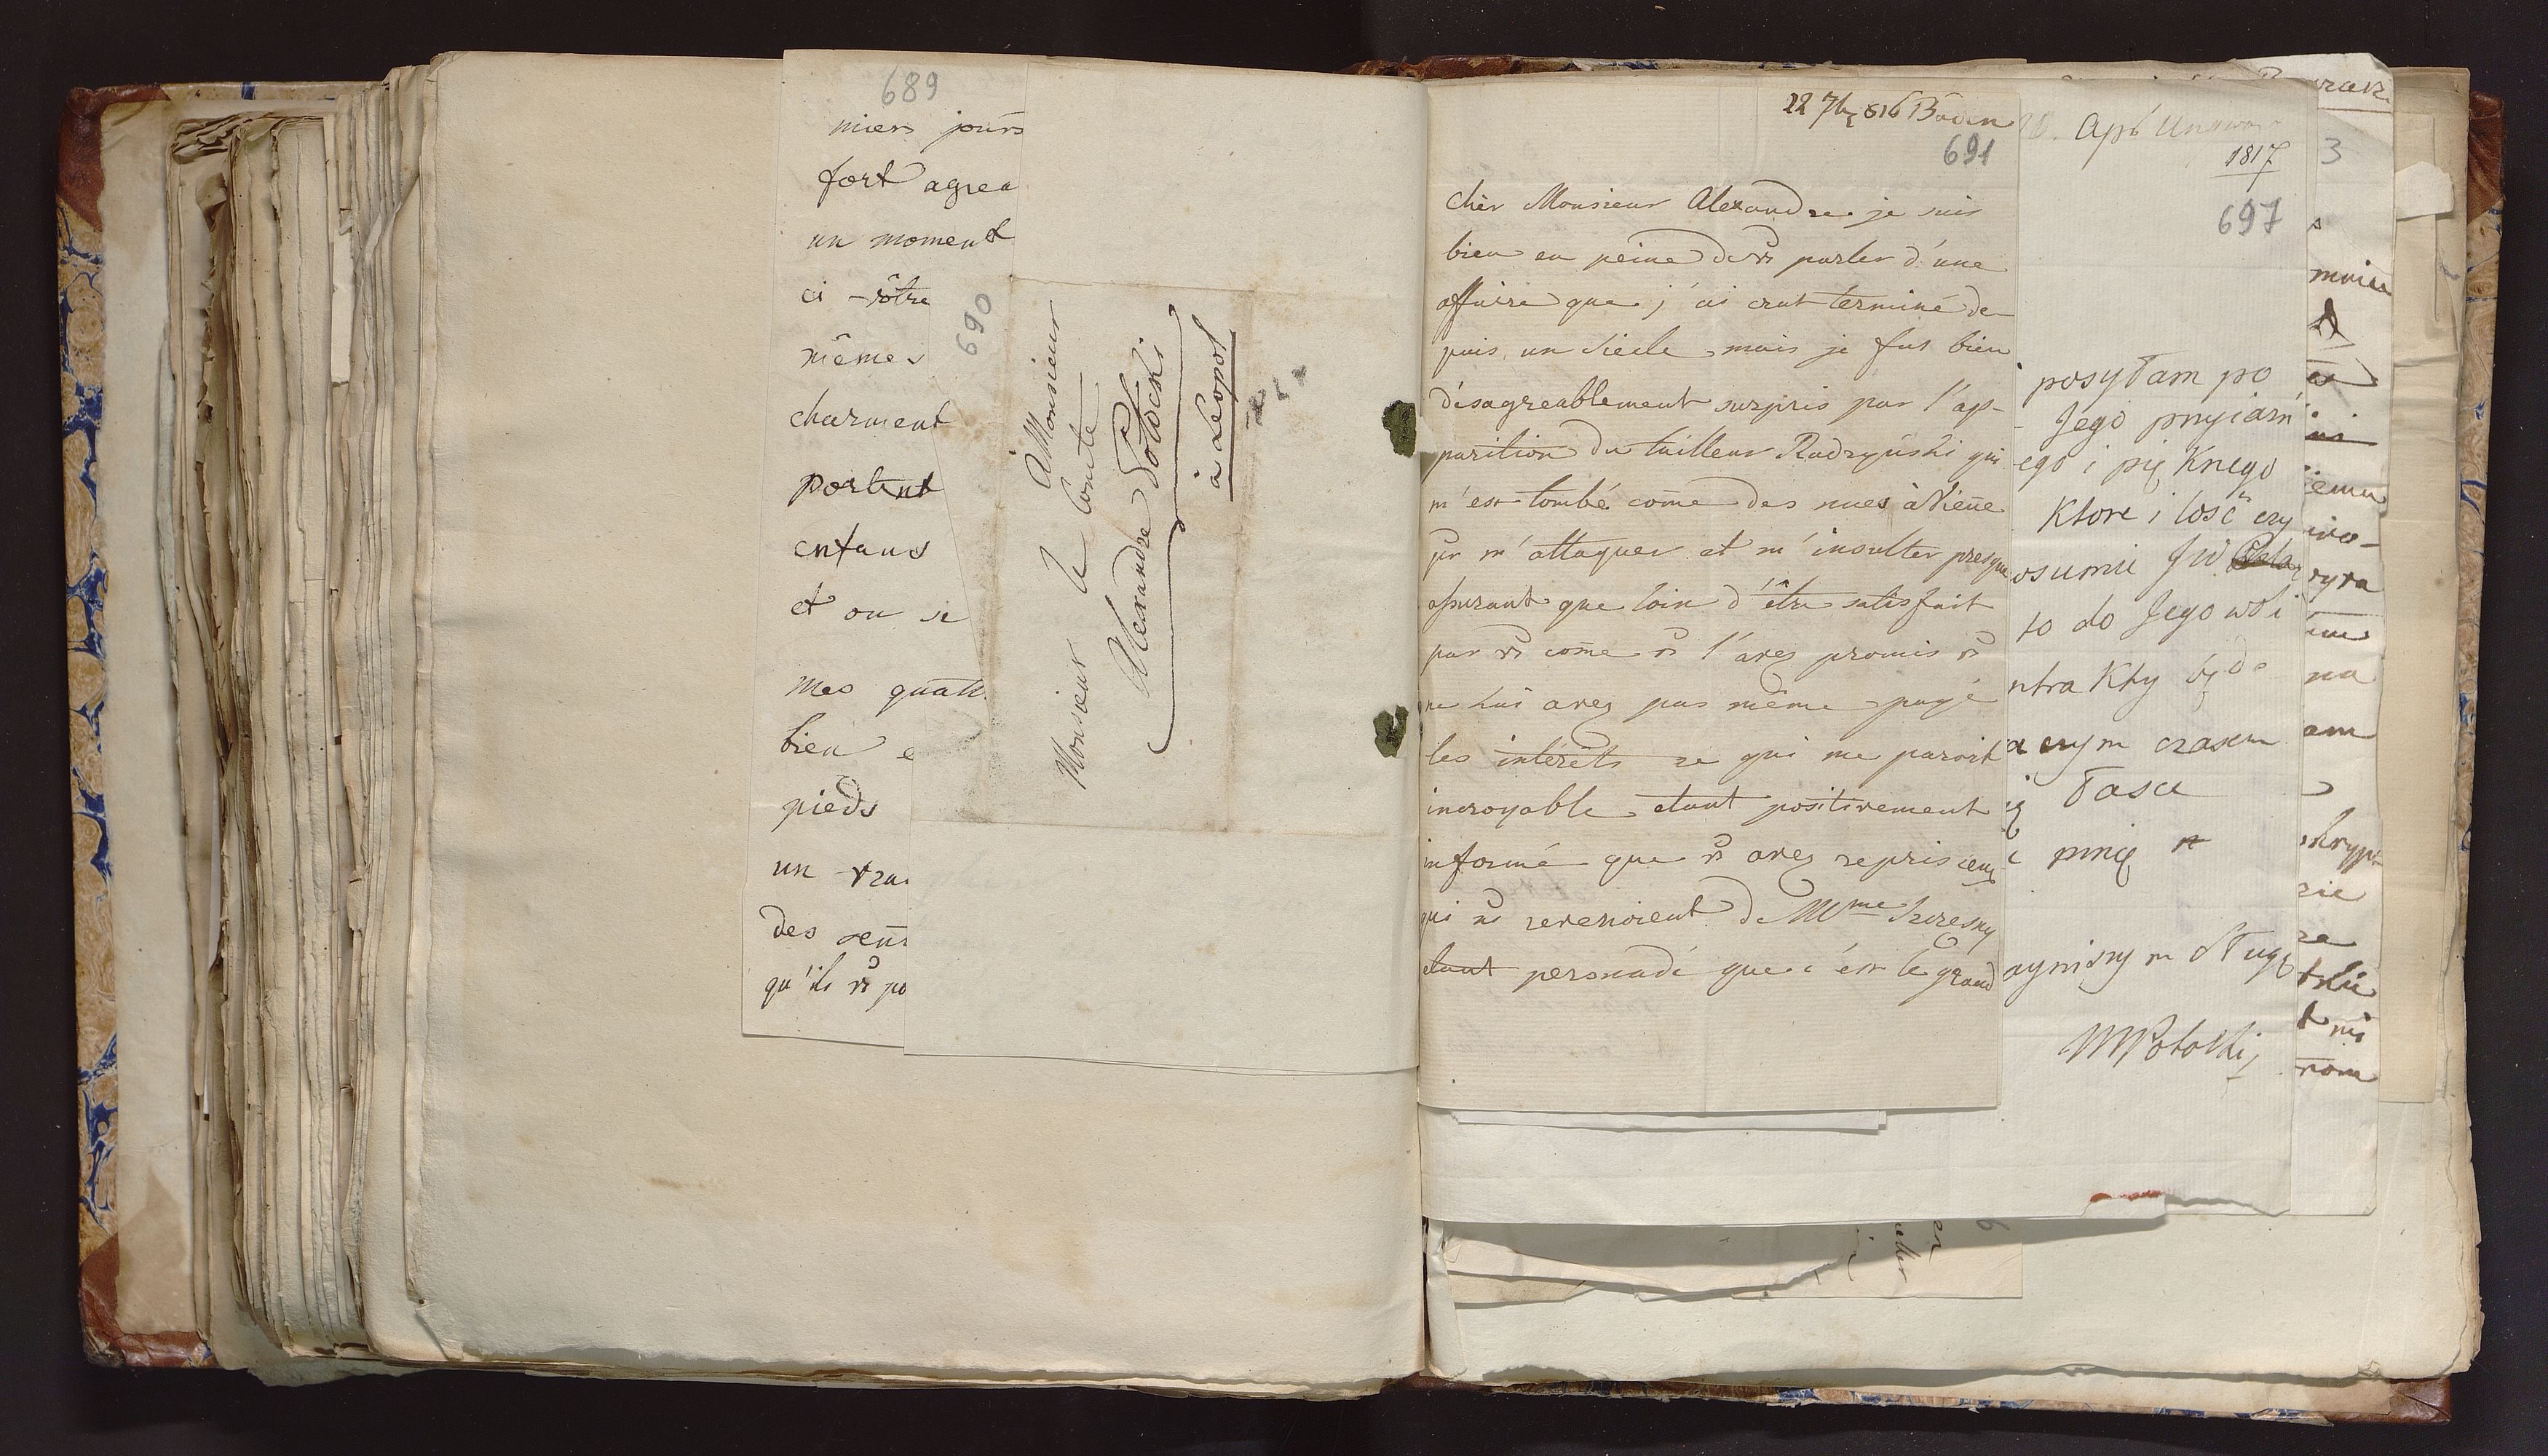 689
miers jours
fort agrea
un moment
ci vôtre
mêmes
charment
portent
enfans
et on se
mes quatt
bien e
pieds
un vrai
des sent
qu'ils vs po
690
A Monsieur
Monsieur le Comte
Alexandre Potocki
à Léopol
22 7br 816 Baden
691
Cher Monsieur Alexandre je suis
bien en peine de vs parler d'une
affaire que j'ai crut terminé de-
puis un siècle mais je fus bien
désagreablement surpris par l'ap-
parition du tailleur Radzyński qui
m'est tombé come des nues à Viene
pr m'attaquer et m'insulter presque
assurant que loin d'être satisfait
par vs come vs l'avez promis vs
ne lui avez pas même payé
les intérêts ce qui me paroit
incroyable etant positivement
informé que vs avez repris ceux
qui vs revenoient de Mme Szczesny
etant persuadé que c'est le grand
1817
697
posyłam po
Jego pnyiaźń
ego i pięKnego
Ktore i losć czy
osumie JW
to do Jego woli
ntraKty będe
a czym czasem
Tasce
i pnię
aynizszym sługą
MPotocki
3
s
mnie
emu
na
am
skryp
zie
ze
nom